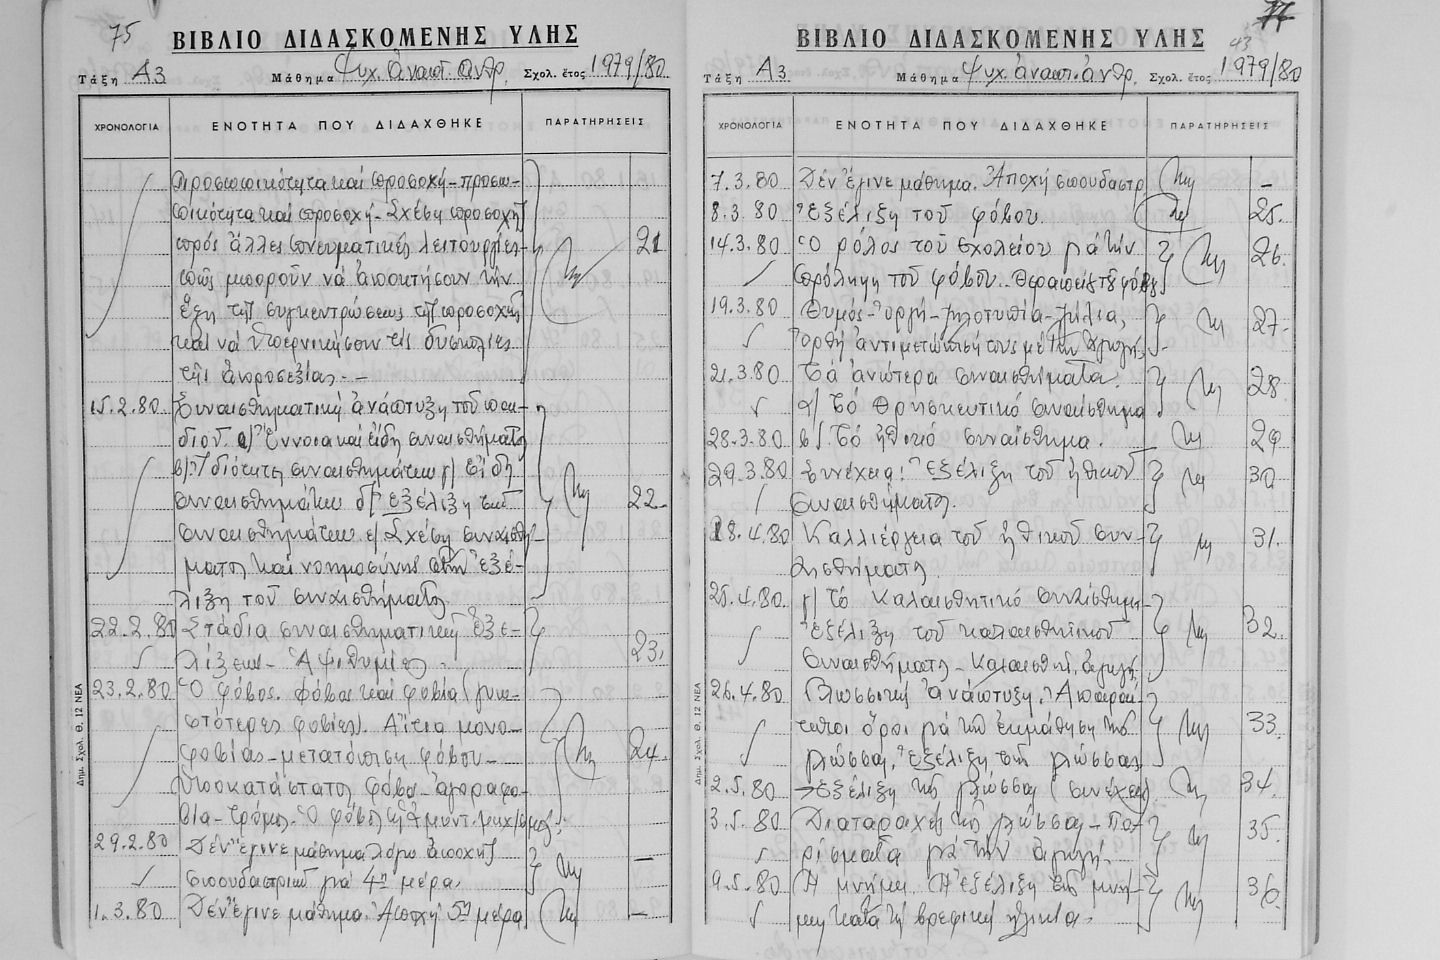 75
ΒΙΒΛΙΟ ΔΙΔΑΣΚΟΜΕΝΗΣ ΥΛΗΣ
Τάξη Α3 Μάθημα Ψυχ. ἀναπτ. ἀνθρ. Σχολ. ἔτος 1979/80
ΧΡΟΝΟΛΟΓΙΑ ΕΝΟΤΗΤΑ ΠΟΥ ΔΙΔΑΧΘΗΚΕ ΠΑΡΑΤΗΡΗΣΕΙΣ
Προσωπικότητα και προσοχή - προσω-
πικότητα και προσοχή - Σχέση προσοχῆς
πρός ἄλλες πνευματικές λειτουργίες - 21
πῶς μποροῦν νά ἀποκτήσουν τήν
ἕξη τῆς συγκεντρώσεως τῆς προσοχῆς
και νά ὑπερνικήσουν τίς δυσκολίες
τῆς ἀπροσεξίας -
15.2.80 Συναισθηματική ἀνάπτυξη τοῦ παι-
διοῦ. α) Ἔννοια και εἴδη συναισθήματος
β) Ἰδιότητες συναισθημάτων γ) Εἴδη
συναισθημάτων δ) Ἐξέλιξη τοῦ 22
συναισθημάτων ε) Σχέση συναισθή-
ματος και νοημοσύνης στήν ἐξέ-
λιξη τοῦ συναισθήματος.
22.2.80 Στάδια συναισθηματικῆς ἐξε-
λίξεως - Ἀψιθυμίες. 23.
23.2.80 Ὁ φόβος. φόβος και φοβία (γνω-
στότερες φοβίες). Αἴτια μονο-
φοβίας - μετατόπιση φόβου - 24.
Ὑποκατάσταση φόβου - ἀγοραφο-
βία - τρόμος - Ὁ φόβος
29.2.80 Δέν ἔγινε μάθημα λόγω ἀποχῆς
σπουδαστριῶν γιά 4η μέρα. —
1.3.80 Δέν ἔγινε μάθημα. Ἀποχή 5η μέρα —
Δημ. Σχολ. Θ. 12 ΝΕΑ
77
43
ΒΙΒΛΙΟ ΔΙΔΑΣΚΟΜΕΝΗΣ ΥΛΗΣ
Τάξη Α3 Μάθημα Ψυχ. ἀναπτ. ἀνθρ. Σχολ. ἔτος 1979/80
ΧΡΟΝΟΛΟΓΙΑ ΕΝΟΤΗΤΑ ΠΟΥ ΔΙΔΑΧΘΗΚΕ ΠΑΡΑΤΗΡΗΣΕΙΣ
7.3.80 Δέν ἔγινε μάθημα. Ἀποχή σπουδαστρ. —
8.3.80 Ἐξέλιξη τοῦ φόβου. 25.
14.3.80 Ὁ ρόλος τοῦ σχολείου γιά τήν 26.
πρόληψη τοῦ φόβου. Θεραπεία τοῦ φόβου
19.3.80 Θυμός - ὀργή - ζηλοτυπία - ζήλια, 27.
Ὀρθή ἀντιμετώπισή τους μέ τήν ἀγωγή.
21.3.80 Τά ἀνώτερα συναισθήματα. 28
α) Τό θρησκευτικό συναίσθημα
28.3.80 β) Τό ἠθικό συναίσθημα. 29
29.3.80 Συνέχεια: Ἐξέλιξη τοῦ ἠθικοῦ 30
συναισθήματος.
18.4.80 Καλλιέργεια τοῦ ἠθικοῦ συν- 31.
αισθήματος.
25.4.80 γ) Τό καλαισθητικό συναίσθημα
Ἐξέλιξη τοῦ καλαισθητικοῦ 32.
συναισθήματος - Καλαισθητ. ἀγωγή
26.4.80 Γλωσσική ἀνάπτυξη. Ἀπαραί-
τητοι ὅροι γιά τήν ἐκμάθηση τῆς 33.
γλώσσας. Ἐξέλιξη τῆς γλώσσας
2.5.80 Ἐξέλιξη τῆς γλώσσας (συνέχεια) 34.
3.5.80 Διαταραχές τῆς γλώσσας - Πο- 35.
ρίσματα γιά τήν ἀγωγή.
9.5.80 Ἡ μνήμη. Ἡ ἐξέλιξη τῆς μνή- 36.
μης κατά τή βρεφική ἡλικία.
Δημ. Σχολ. Θ. 12 ΝΕΑ